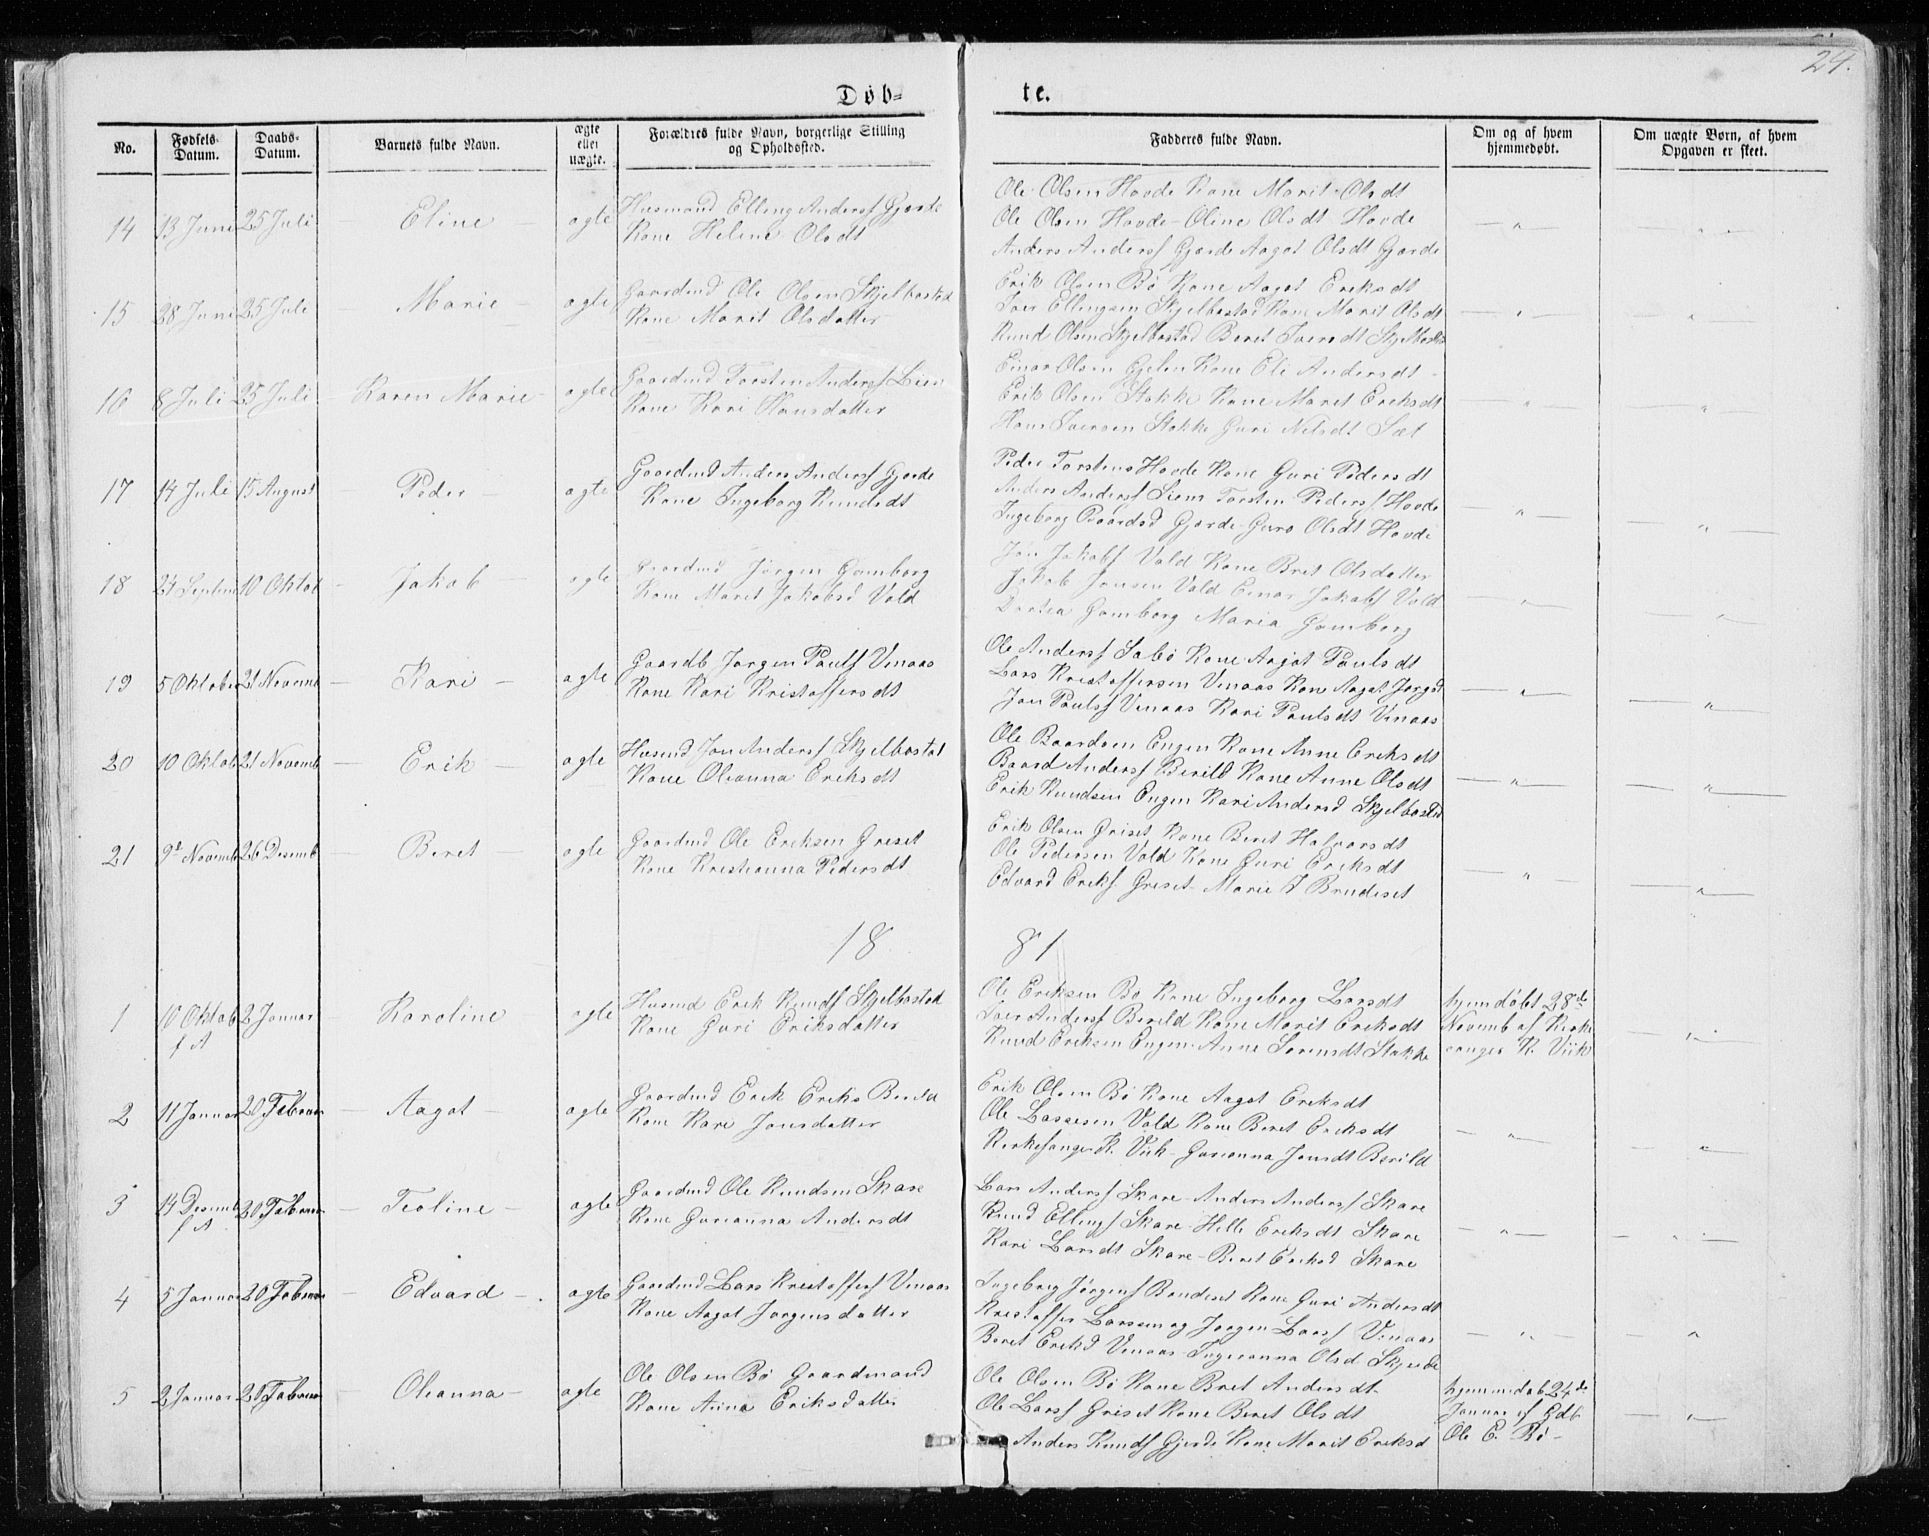 24.
Døb= te.
No. Fødsels-Datum. Daabs-Datum. Barnets fulde Navn. ægte eller uægte. Forældres fulde Navn, borgerlige Stilling og Opholdssted. Fadderes fulde Navn. Om og af hvem hjemmedøbt. Om uægte Børn, af hvem Opgaven er skeet.
14 13 Juni 25 Juli — Eline — ægte
Husmand Elling Anders Gjerde
Kone Heline Olsdt
Ole Olsen Hovde Kone Marit Olsdt
Ole Olsen Hovde - Oline Olsdt Hovde
Anders Anders Gjerde Aagot Olsdt Gjerde
15 28 Juni 25 Juli — Marie — ægte
Gaardmd Ole Olsen Skjelbostad
Kone Marit Olsdatter
Erik Olsen Bø Kone Aagot Eriksdt
Iver Ellingsen Skjelbostad Kone Marit Olsdt
Knud Olsen Skjelbostad Beret Iversdt Skjelbostad
16 8 Juli 25 Juli — Karen Marie — ægte
Gaardmd Torsten Anders Lien
Kone Kari Hansdatter
Einar Olsen Gjelen Kone Eli Andersdt
Erik Olsen Stokke Kone Maret Eriksdt
Hans Iversen Stokke Guri Nilsdt Sæt
17 14 Juli 15 August — Peder — ægte
Gaardmd Anders Anders Gjerde
Kone Ingeborg Knudsdt
Peder Torstens Hovde Kone Guri Pedersdt
Anders Anders Lien Torsten Peders Hovde
Ingeborg Baardsd Gjerde - Guro Olsdt Hovde
18 24 Septem 10 Oktob — Jakob — ægte
Gaardmd Jørgen Gomborg
Kone Marit Jakobsd Vold
Jon Jakobs Vold Kone Bret Olsdatter
Jakob Jonsen Vold Einar Jakobs Vold
Dortea Gomborg Maria Gomborg
19 5 Oktober 21 Novemb — Kari — ægte
Gaardb Jørgen Pauls Venaas
Kone Kari Kristoffersdt
Ole Anders Sæbø Kone Aagot Paulsdt
Lars Kristoffersen Venaas Kon Aagot Jørgsd
Jon Pauls Venaas Kari Paulsdt Venaas
20 10 Oktob 21 Novemb — Erik — ægte
Husmd Jon Anders Skjelbostad
Kone Olianna Eriksdt
Ole Baardsen Engen Kone Anne Eriksdt
Baard Anders Berild Kone Anne Olsdt
Erik Knudsen Engen Kari Andersd Skjelbostad
21 9de Novemb 26 Desemb — Beret — ægte
Gaardmd Ole Eriksen Griset
Kone Kristianna Pedersdt
Erik Olsen Griset Kone Beret Halvorsdt
Ole Pedersen Vold Kone Guri Eriksdt
Edvard Eriks Griset - Marie J Brudeset
18 81
1 10 Oktob f A 2 Januar — Karoline — ægte
Husmd Erik Knuds Skjelbostad
Kone Guri Eriksdatter
Ole Eriksen Bø Kone Ingeborg Larsdt
Iver Anders Berild Kone Marit Eriksdt
Knud Eriksen Engen - Anne Sørensdt Stokke
hjemdøbt 28de
Novemb af Kirke
sanger K. Viik
2 11 Januar 20 Februar — Aagot — ægte
Gaardmd Erik Eriks Berild
Kone Kari Jonsdatter
Erik Olsen Bø Kone Aagot Eriksdt
Ole Lassesen Vold Kone Beret Eriksdt
Kirkesanger K. Viik - Gurianna Jonsdt Berild
3 14 Desemb f A 20 Februar — Teoline — ægte
Gaardmd Ole Knudsen Skare
Kone Gurianna Andersdt
Lars Anders Skare - Anders Anders Skare
Knud Ellings Skare - Helle Eriksdt Skare
Kari Larsdt Skare - Beret Eriksd Skare
4 5 Januar 20 Februar — Edvard — ægte
Gaardmd Lars Kristoffers Venaas
Kone Aagot Jørgensdatter
Ingebrig Jørgens Bondeset Kone Guri Andersdt
Kristoffer Larssen og Jørgen Lars Venaas
Beret Eriksd Venaas - Ingerianna Olsd Skjerde
5 2 Januar 20 Februar — Olianna — ægte
Ole Olsen Bø Gaardmand
Kone Anna Eriksdatter
Ole Olsen Bø Kone Bret Andersdt
Ole Lars Griset Kone Beret Olsdt
Anders Knuds Gjerde Kone Marit Eriksd
hjemmedøb 24de
Januar af Gdb
Ole E. Bø